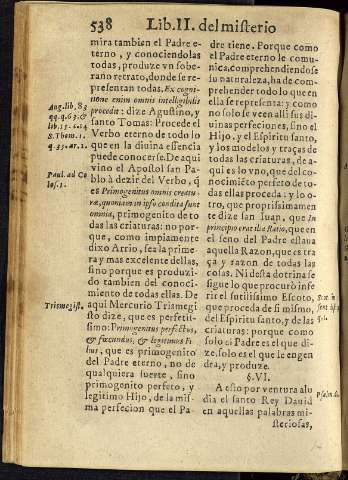 538 Lib. II. del misterio
mira tambien el Padre e-
terno, y conociendolas
todas, produze vn sobe-
rano retrato, donde se re-
presentan todas. Ex cogni-
tione enim omnis intelligibilis
procedit: dize Agustino, y
santo Tomas: Procede el
Verbo eterno de todo lo
que en la diuina essencia
puede conocerse. De aqui
vino el Apostol san Pa-
blo à dezir del Verbo, q̃
es Primogenitus omnis creatu-
ræ, quoniam in ipso condita sunt
omnia, primogenito de to
das las criaturas: no por-
que, como impiamente
dixo Arrio, sea la prime-
ra y mas excelente dellas,
sino porque es produzi-
do tambien del conoci-
miento de todas ellas. De
aqui Mercurio Trismegi
sto dize, que es perfetis-
simo: Primogenitus perfectus,
& fæcundus, & legitimus Fi-
lius, que es primogenito
del Padre eterno, no de
qualquiera suerte, sino
primogenito perfeto, y
legitimo Hijo, de la mis-
ma perfecion que el Pa-
Aug. lib. 83
qq. q. 63. &
lib. 15.
S. Thom. 1.
q. 34. ar. 1.
Paul. ad Co
los. 1.
Trismegist.
dre tiene. Porque como
el Padre eterno le comu-
nica, comprehendiendose
su naturaleza, ha de com-
prehender todo lo que en
ella se representa: y como
no solo se veen alli sus di-
uinas perfeciones, sino el
Hijo, y el Espiritu santo,
y los modelos y traças de
todas las criaturas, de a-
qui es lo vno, que del co-
nocimiẽto perfeto de to-
das ellas proceda: y lo o-
tro, que propriissimamen
te dize san Iuan, que In
principio erat ilia Ratio, que en
el seno del Padre estaua
aquella Razon, que es tra
ça y razon de todas las
cosas. Ni desta dotrina se
sigue lo que procurò infe
rir el sutilissimo Escoto,
que proceda de si mismo,
del Espiritu santo, y de las
criaturas: porque como
solo el Padre es el que di-
ze, solo es el que le engen
dra, y produze.
§. VI.
A esto por ventura alu
dia el santo Rey Dauid
en aquellas palabras mi-
steriosas,